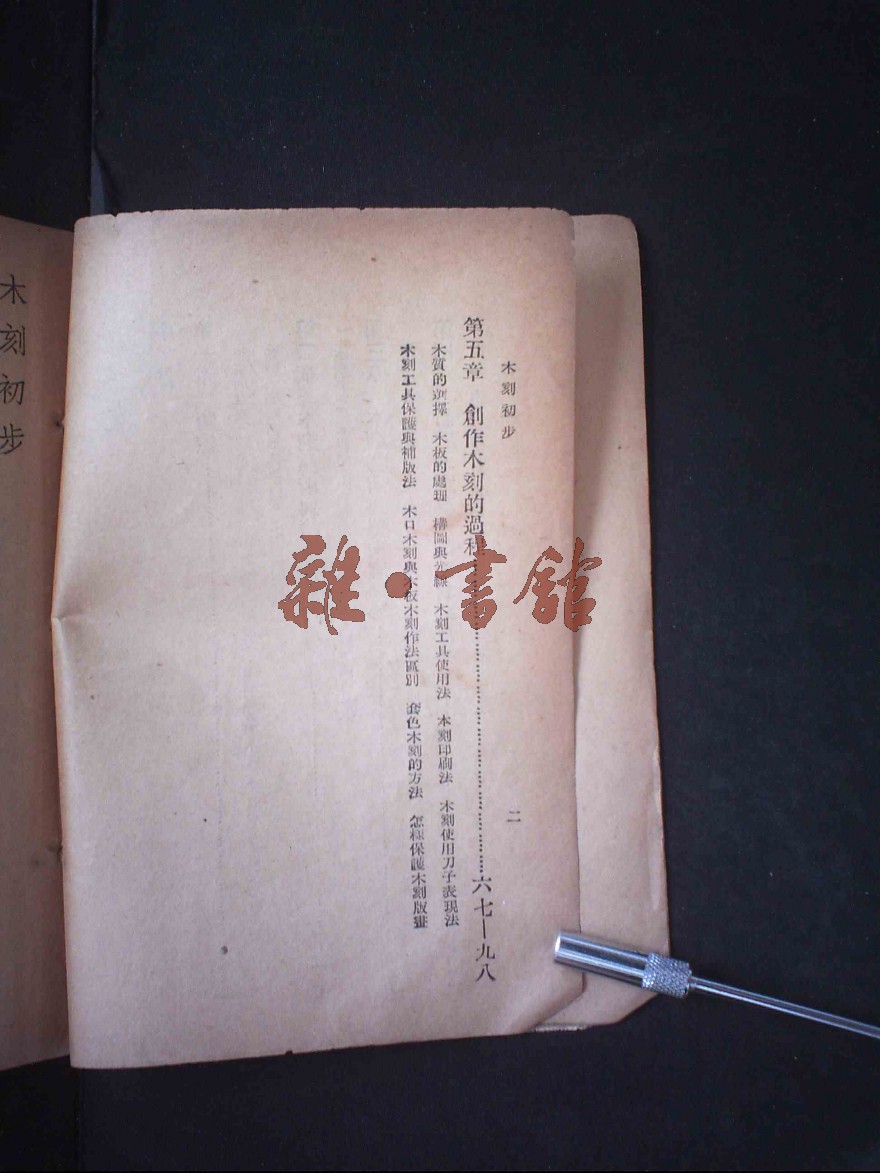 木刻初步
二
第五章　創作木刻的過程……六七—九八
木質的選擇　木板的處理　構圖與光線　木刻工具使用法　木刻印刷法　木刻使用刀子表現法
木刻工具保護與補版法　木口木刻與木板木刻作法區別　套色木刻的方法　怎樣保護木刻版畫
木刻初步
雜·書館